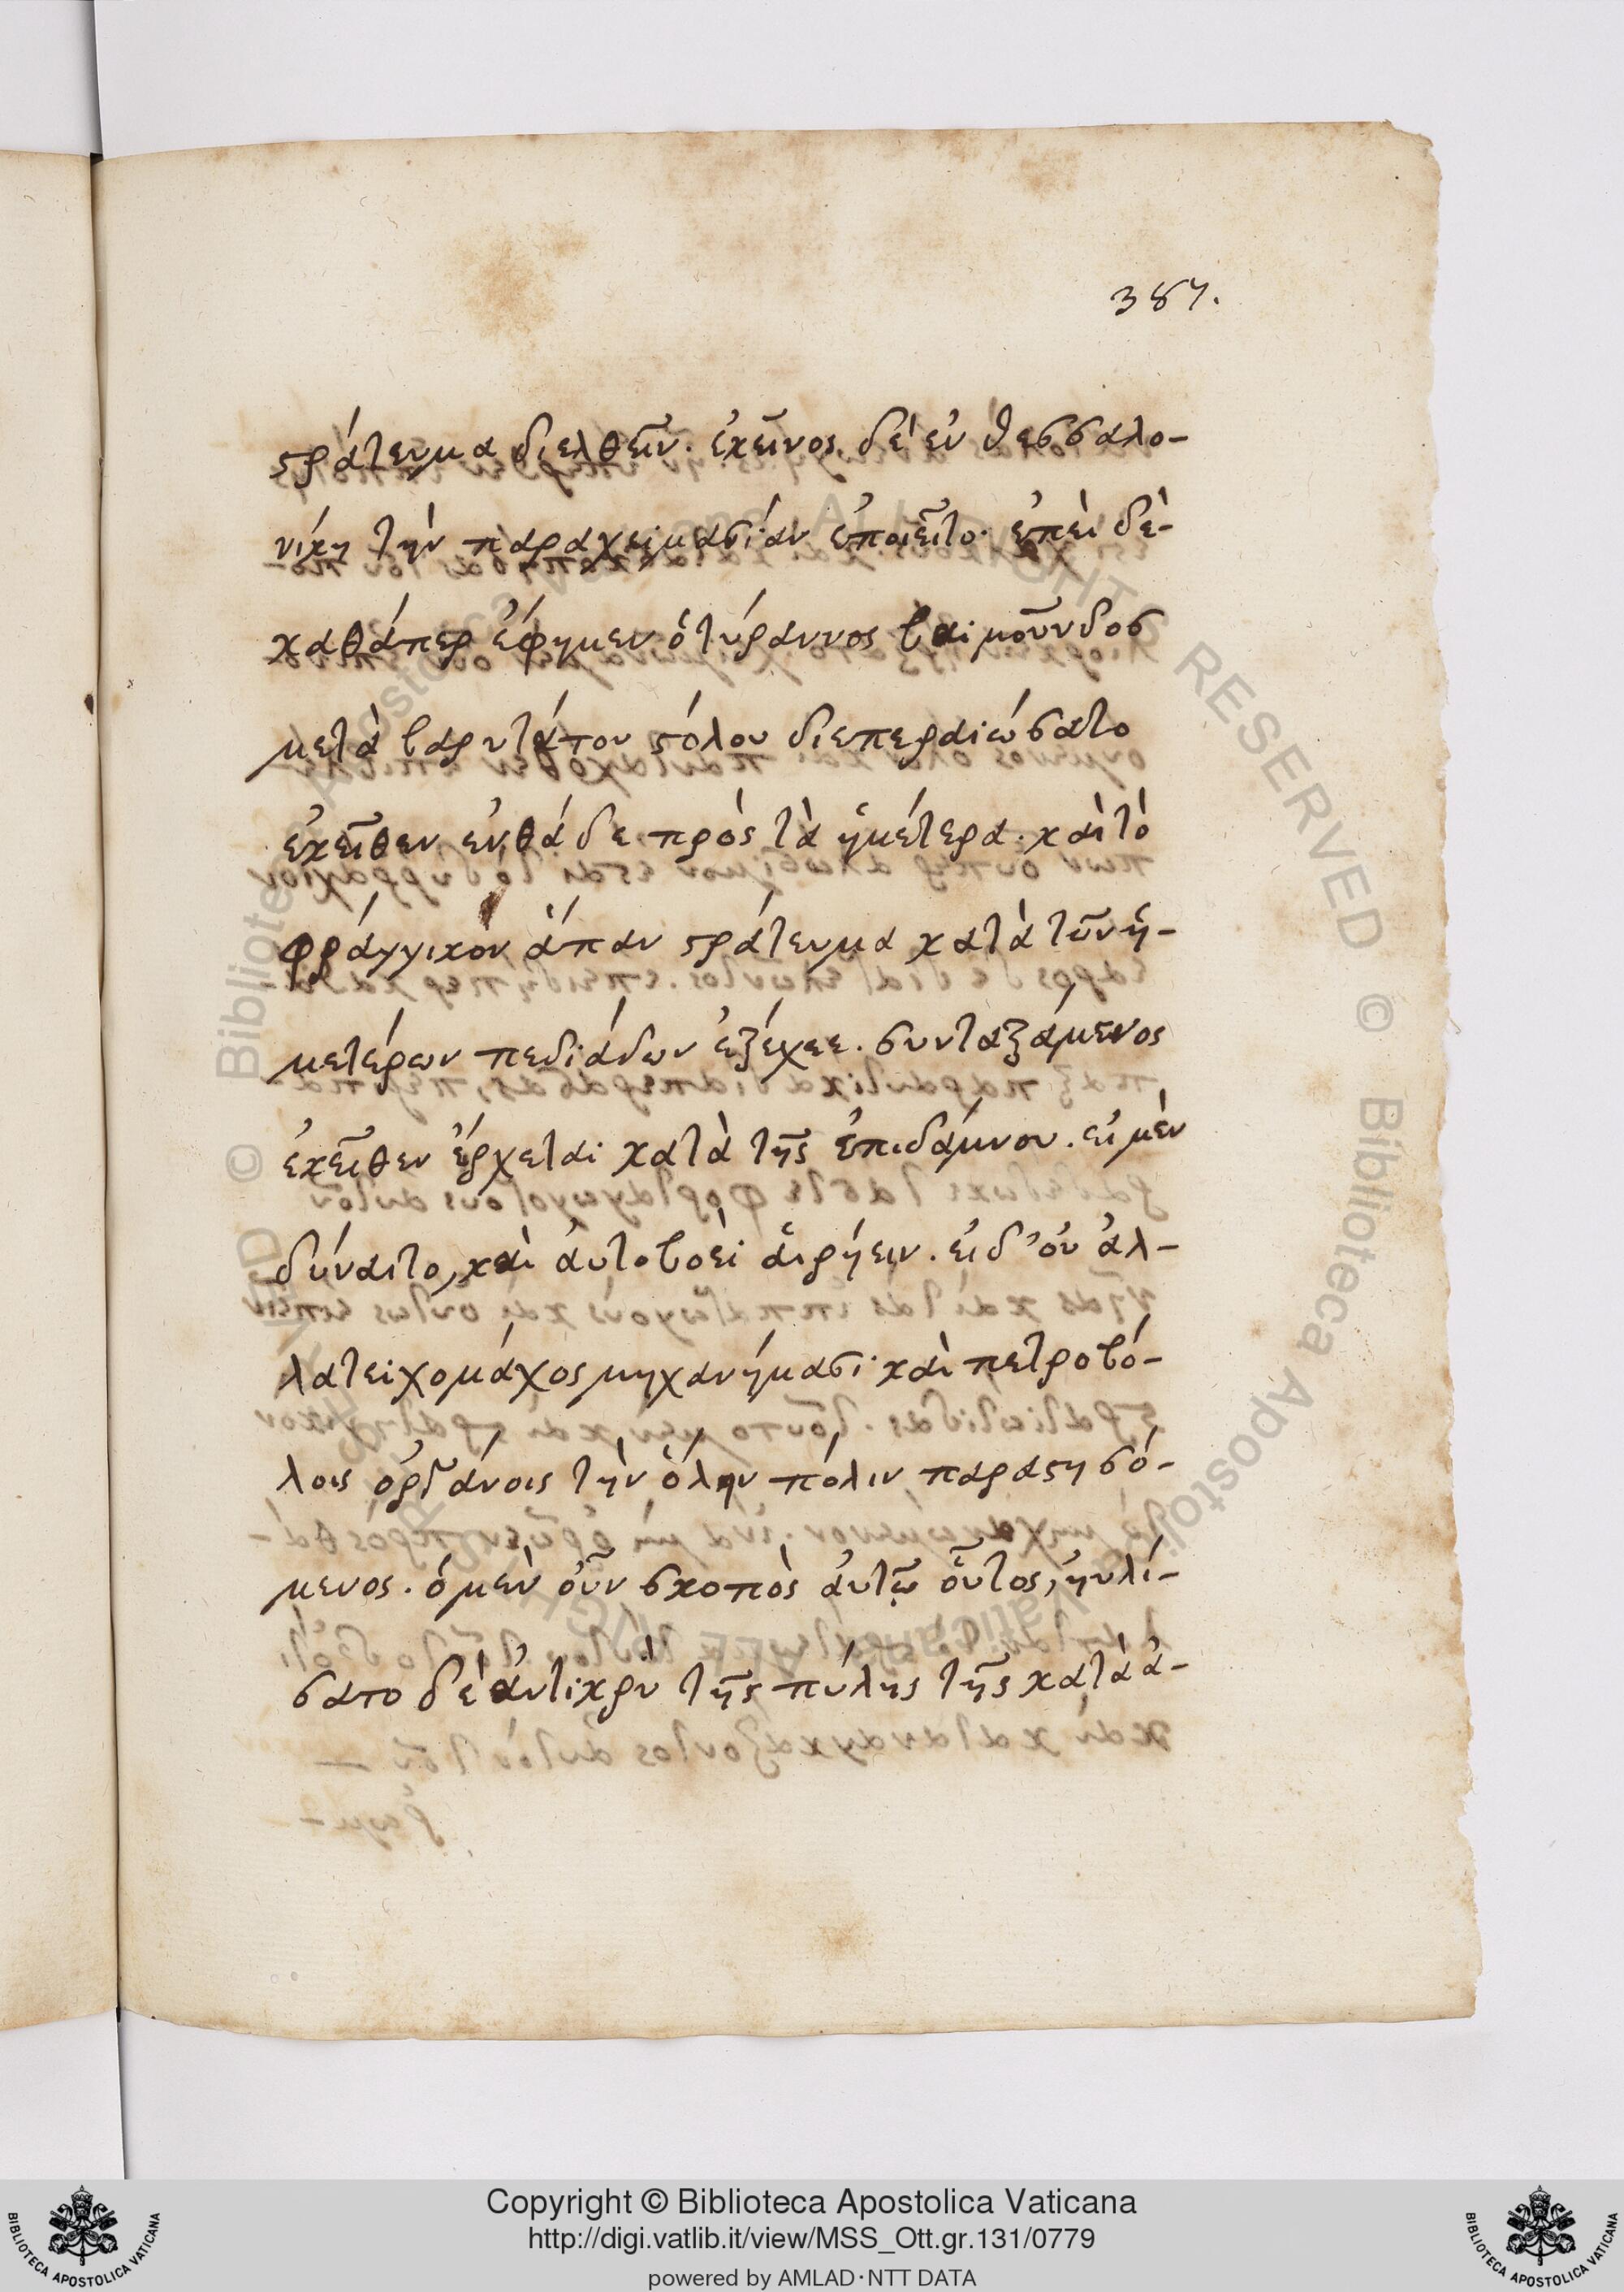 387.
στράτευμα διελθεῖν. ἐκεῖνος δὲ ἐν θεσσαλο-
νίκη τὴν παραχειμασίαν ἐποιεῖτο· ἐπεὶ δὲ
καθάπερ ἔφημεν ὁ τύραννος βαϊμοῦνδος
μετὰ βαρυτάτου στόλου διεπεραιώσατο
ἐκεῖθεν ἐνθάδε πρὸς τὰ ἡμέτερα. καὶ τὸ
φράγγικον ἅπαν στράτευμα κατὰ τῶν ἡ-
μετέρων πεδιάδων ἐξέχεε. συνταξάμενος
ἐκεῖθεν ἔρχεται κατὰ τῆς ἐπιδάμνου. εἰ μὲν
δύναιτο, καὶ αὐτοβοεὶ αἱρήειν. εἰ δ' οὐ ἀλ-
λα τειχομάχος μηχανήμασι καὶ πετροβό-
λοις ὀργάνοις τὴν ὅλην πόλιν παραστησό-
μενος. ὁ μὲν οὖν σκοπὸς αὐτῷ οὗτος, ηὐλί-
σατο δὲ ἀντικρὺ τῆς πύλης τῆς κατὰ ἀ-
Copyright © Biblioteca Apostolica Vaticana
http://digi.vatlib.it/view/MSS_Ott.gr.131/0779
powered by AMLAD·NTT DATA
BIBLIOTECA APOSTOLICA VATICANA
BIBLIOTECA APOSTOLICA VATICANA